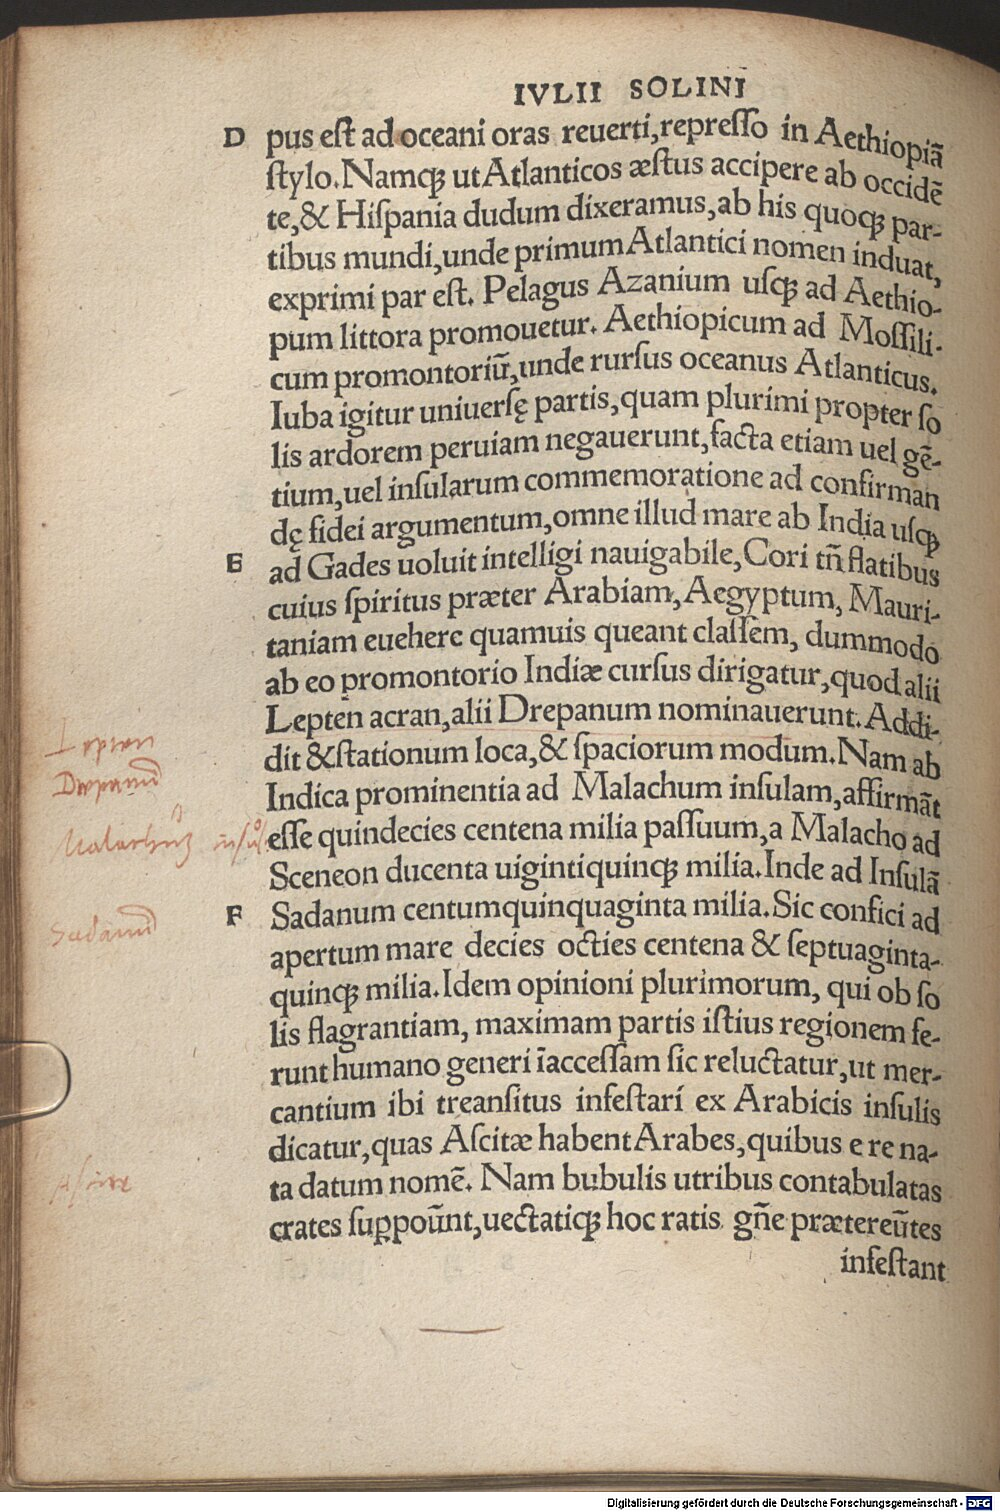 IVLII SOLINI
D pus eſt ad oceani oras reuerti,repreſſo in Aethiopiā
ſtylo.Namqꝫ ut Atlanticos æſtus accipere ab occidē
te,& Hiſpania dudum dixeramus,ab his quoqꝫ par-
tibus mundi,unde primum Atlantici nomen induat,
exprimi par eſt. Pelagus Azanium uſqꝫ ad Aethio-
pum littora promouetur. Aethiopicum ad Moſſili-
cum promontoriū,unde rurſus oceanus Atlanticus.
Iuba igitur uniuerſę partis,quam plurimi propter ſo
lis ardorem peruiam negauerunt,facta etiam uel gē-
tium,uel inſularum commemoratione ad confirman
dę fidei argumentum,omne illud mare ab India uſqꝫ
E ad Gades uoluit intelligi nauigabile,Cori tñ flatibus
cuius ſpiritus præter Arabiam,Aegyptum, Mauri-
taniam euehere quamuis queant claſſem, dummodo
ab eo promontorio Indiæ curſus dirigatur,quod alii
Lepten acran,alii Drepanum nominauerunt.Addi-
dit &ſtationum loca,& ſpaciorum modum.Nam ab
Indica prominentia ad Malachum inſulam,affirmāt
eſſe quindecies centena milia paſſuum,a Malacho ad
Sceneon ducenta uigintiquinqꝫ milia.Inde ad Inſulā
F Sadanum centumquinquaginta milia.Sic confici ad
apertum mare decies octies centena & ſeptuaginta-
quinqꝫ milia.Idem opinioni plurimorum, qui ob ſo
lis flagrantiam, maximam partis iſtius regionem fe-
runt humano generi īacceſſam ſic reluctatur,ut mer-
cantium ibi treanſitus infeſtari ex Arabicis inſulis
dicatur,quas Aſcitæ habent Arabes,quibus e re na-
ta datum nomē. Nam bubulis utribus contabulatas
crates ſuppoūnt,uectatiqꝫ hoc ratis gñe prætereūtes
infeſtant
Lepten
Drepanū
Malachus
Sadanū
Aſcitæ
Digitalisierung gefördert durch die Deutsche Forschungsgemeinschaft - DFG